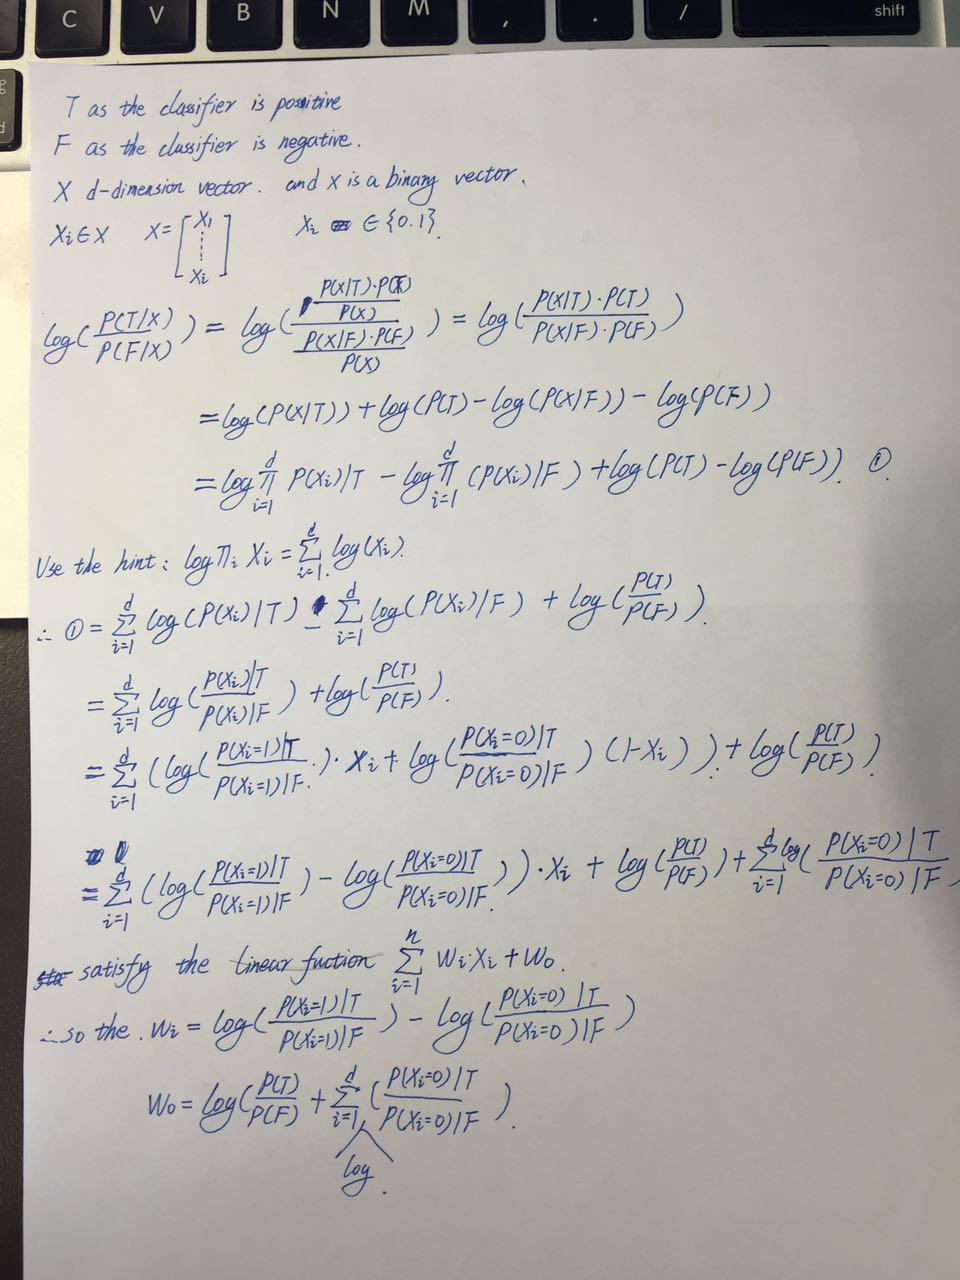 C V B N M , . / shift
T as the classifier is positive
F as the classifier is negative.
X d-dimension vector. and x is a binary vector.
Xi∈X X=[X1 ¦ Xi] Xi ∈{0.1}.
log(P(T/X)/P(F/X)) = log((P(X|T)·P(T)/P(X))/(P(X|F)·P(F)/P(X))) = log(P(X|T)·P(T)/P(X|F)·P(F))
=log(P(X|T))+log(P(T)-log(P(X|F))-log(P(F))
=log ∏_{i=1}^{d} P(Xi)|T - log ∏_{i=1}^{d} (P(Xi)|F) +log(P(T)-log(P(F)). ①
Use the hint: log∏i Xi = ∑_{i=1.}^{d} log(Xi).
∴ ①= ∑_{i=1}^{d} log(P(Xi)|T) - ∑_{i=1}^{d} log(P(Xi)|F) + log(P(T)/P(F)).
= ∑_{i=1}^{d} log(P(Xi)|T/P(Xi)|F) +log(P(T)/P(F)).
= ∑_{i=1}^{d} (log(P(Xi=1)|T/P(Xi=1)|F.)· Xi + log(P(Xi=0)|T/P(Xi=0)|F) (1-Xi)). + log(P(T)/P(F))
= ∑_{i=1}^{d} (log(P(Xi=1)|T/P(Xi=1)|F) - log(P(Xi=0)|T/P(Xi=0)|F.))·Xi + log(P(T)/P(F)) + ∑_{i=1}^{d} log(P(Xi=0)|T/P(Xi=0)|F
satisfy the linear fuction ∑_{i=1}^{n} Wi·Xi + W0.
∴so the. Wi = log(P(Xi=1)|T/P(Xi=1)|F) - log(P(Xi=0)|T/P(Xi=0)|F)
W0 = log(P(T)/P(F) + ∑_{i=1}^{d} (P(Xi=0)|T/P(Xi=0)|F).
log.